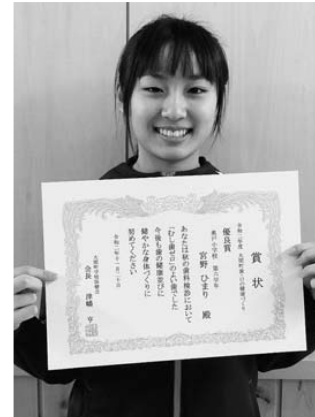 賞状
優良賞
宮野 ひまり 殿
あなたは秋の歯科検診において
「むし歯ゼロ」のよい歯でした
今後も歯の健康並びに
健やかな身体づくりに
努めてください
令和二年十一月二十日
会長